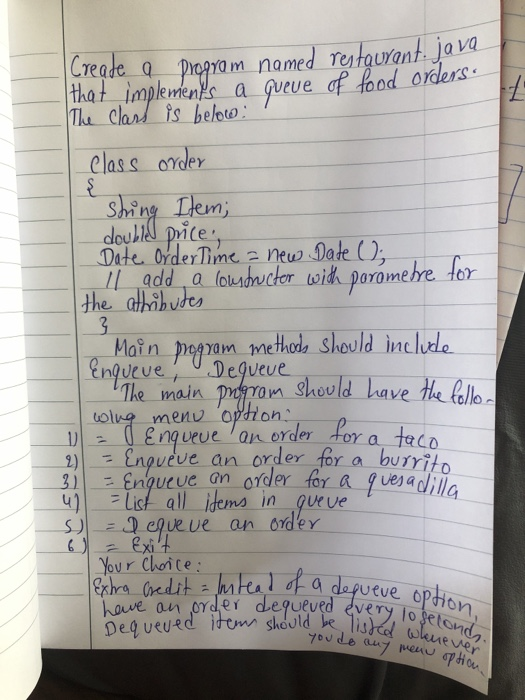 Create a program named restaurant.java
that implements a queue of food orders.
The class is below:
Class order
{
String Item;
double price;
Date OrderTime = new Date();
// add a constructor with parametre for
the attributes
}
Main program methods should include
Enqueue, Dequeue
The main program should have the follo-
wing menu option:
1) = Enqueue an order for a taco
2) = Enqueue an order for a burrito
3) = Enqueue an order for a quesadilla
4) = List all items in queue
5) = Dequeue an order
6) = Exit
Your Choice:
Extra Credit = Intead of a dequeue option,
have an order dequeued every 10 seconds.
Dequeued items should be listed whenever
you do any menu option.